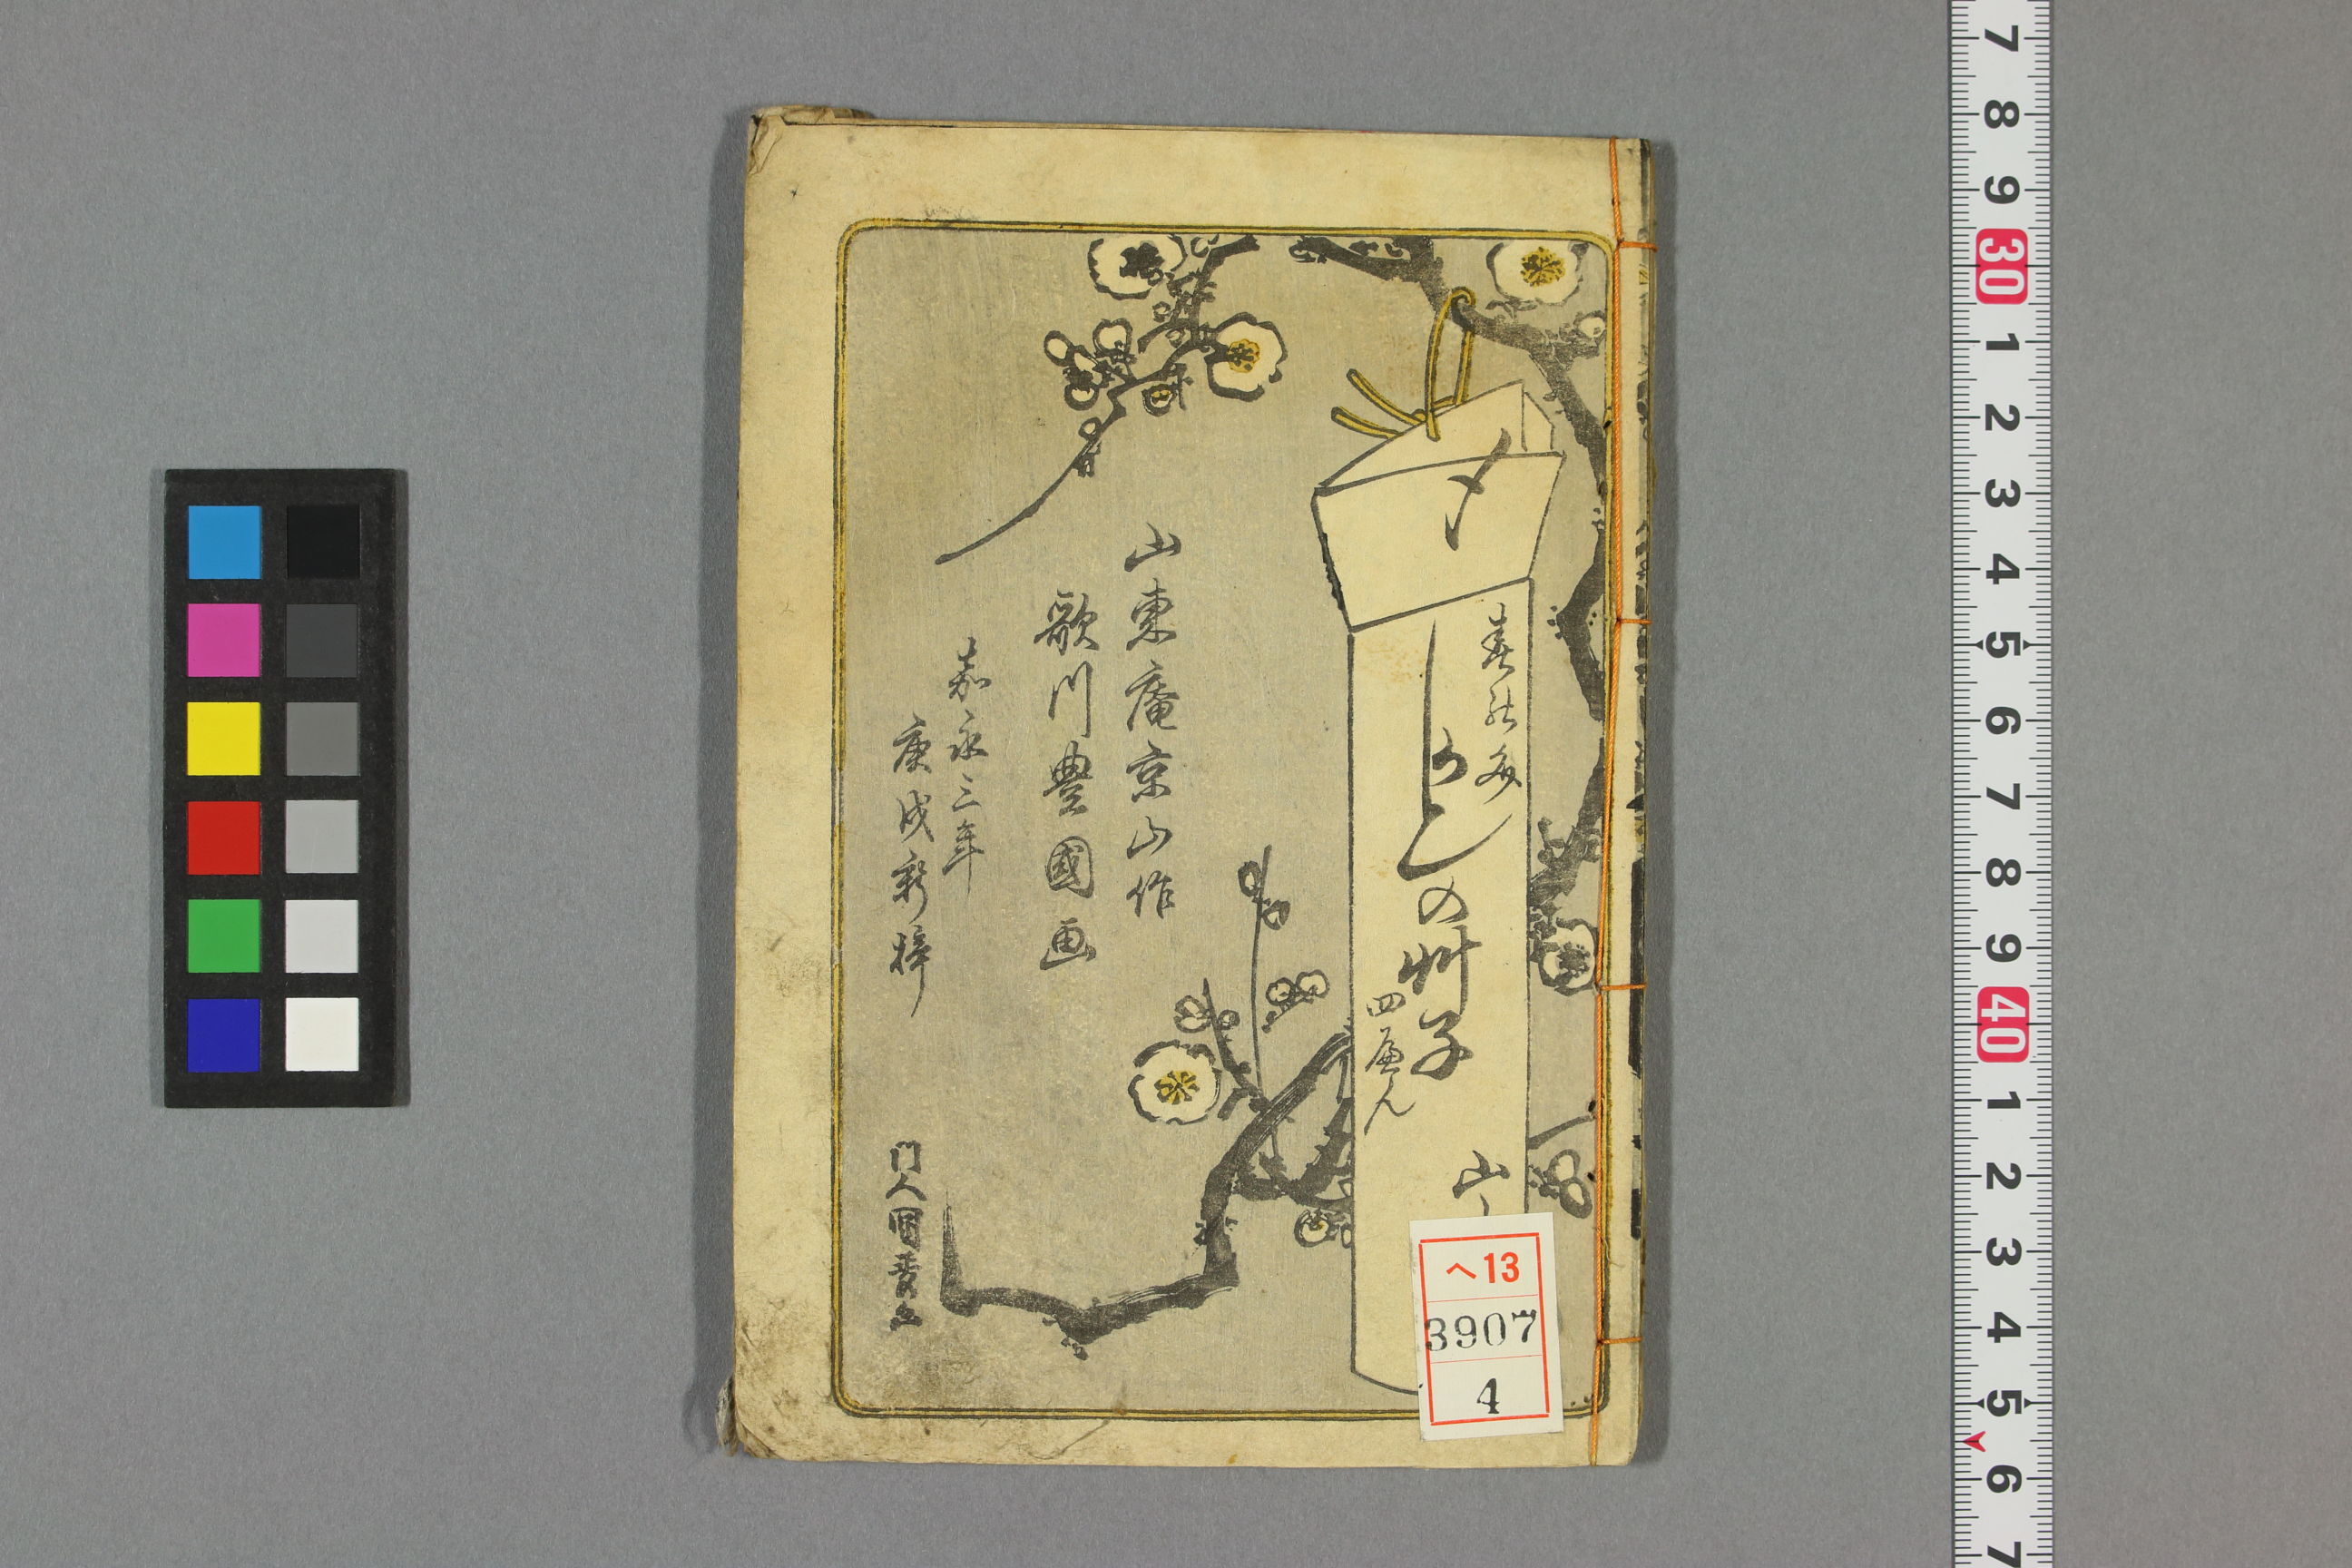 〆
春能文
かしくの艸子
四へん
山
山東庵京山作
歌川豊國画
嘉永三年
庚戌新梓
門人國
へ13
3907
4
7
8
9
30
1
2
3
4
5
6
7
8
9
40
1
2
3
4
5
6
7